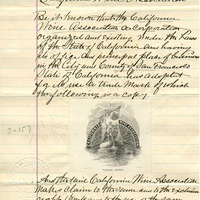 California Wine Association
Be it Known that the California
Wine Association a corporation
organized and existing under the laws
of the State of California and having
its office and principal place of business
in the City and County of San Francisco
State of California has adopted
for its use a Trade Mark of which
the following is a copy.
And the said California Wine Association
makes claim to the same and to the exclusive
right to the use of the same